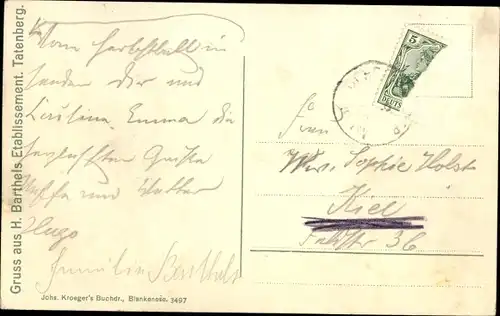 Gruss aus H. Barthels Etablissement. Tatenberg.
Vom Herbstball in
senden dir und
Emma die
herzlichsten Grüße
Neffe und Vetter
Hugo
Familie Barthels
Johs. Kroeger's Buchdr., Blankenese. 3497
5
DEUTS
Frau
Wwe. Sophie Holst
Kiel
Feldstr 36